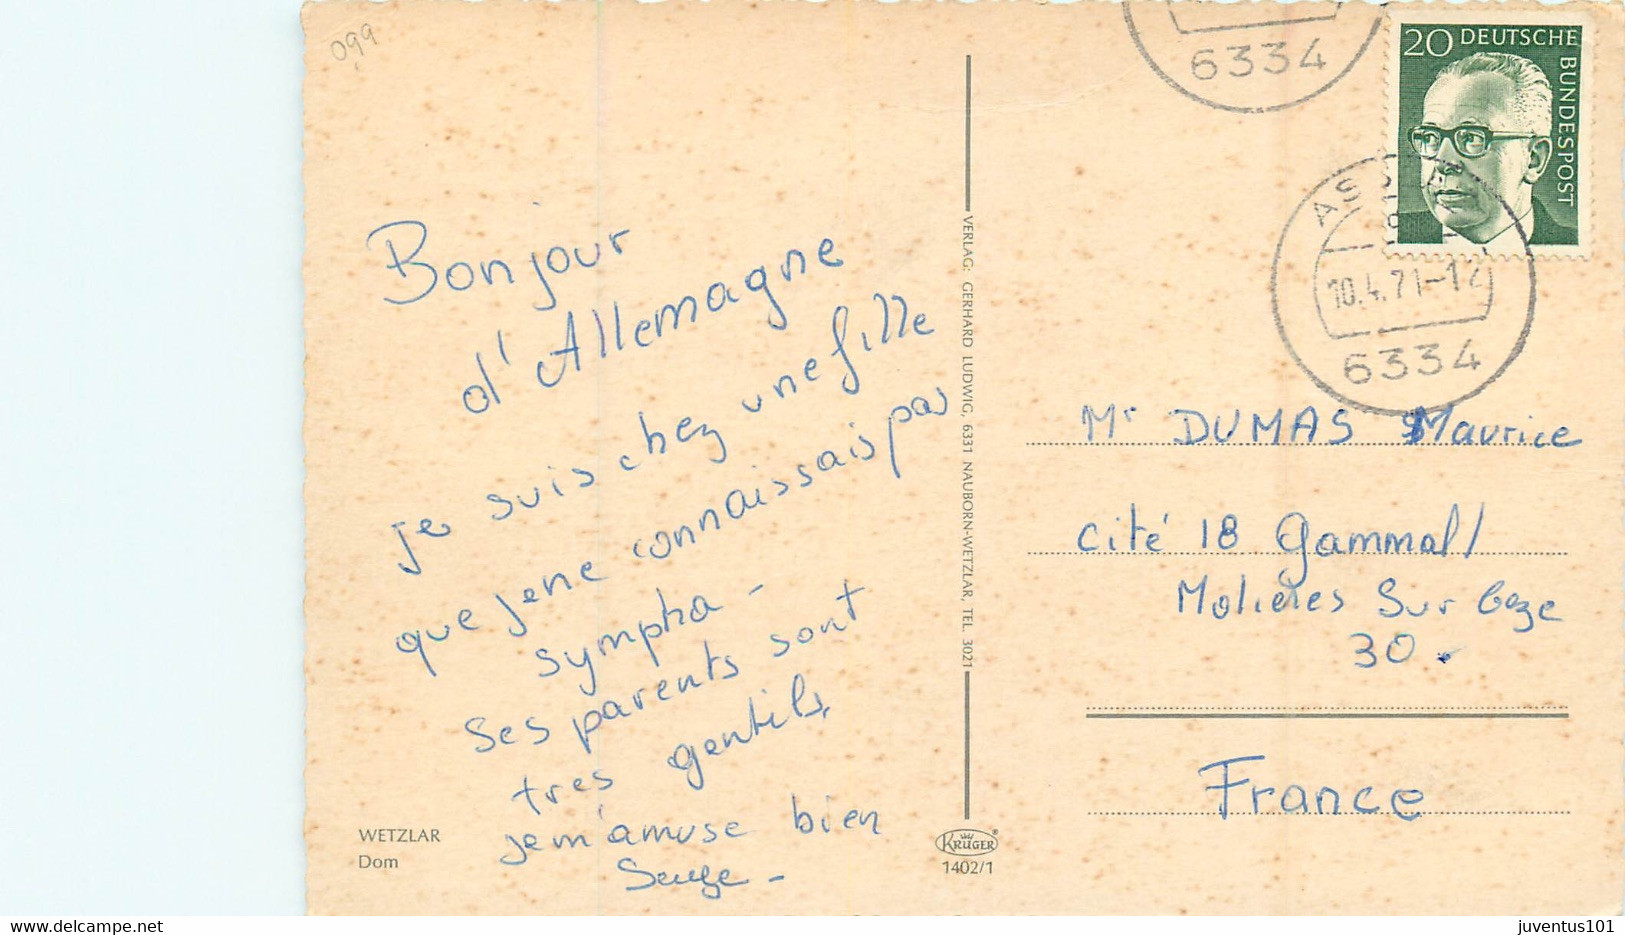 0,99
6334
20 DEUTSCHE
BUNDESPOST
10.4.71-12
6334
Bonjour
d'Allemagne
je suis chez une fille
que je ne connaissais pas
sympha -
Ses parents sont
tres gentils,
je m'amuse bien
VERLAG: GERHARD LUDWIG, 6331 NAUBORN-WETZLAR, TEL. 3021
Mr DUMAS Maurice
Cité 18 Gammal/
Molieres Sur Ceze
30.
France
WETZLAR
Dom
KRÜGER
1402/1
juventus101